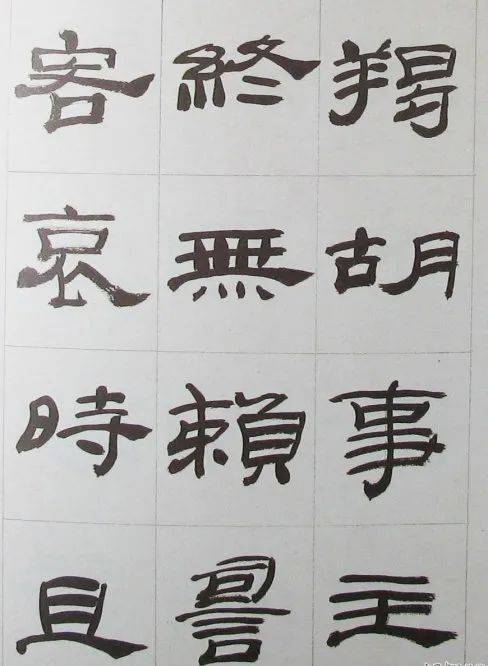 羯胡事主
終無賴詞
客哀時且